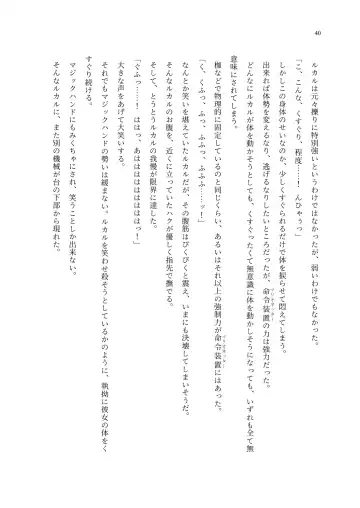 40
ルカルは元々擽りに特別強いというわけではなかったが、弱いわけでもなかった。
「こ、こんな、くすぐり、程度……！　んひゃぅっ」
しかしこの身体のせいなのか、少しくすぐられるだけで体を捩らせて悶えてしまう。
出来れば体勢を変えるなり、逃げるなりしたいところだったが、命令装置の力は強力だった。
どんなにルカルが体を動かそうとしても、くすぐったくて無意識に体を動かしそうになっても、いずれも全て無
意味にされてしまう。
枷などで物理的に固定しているのと同じくらい、あるいはそれ以上の強制力が命令装置にはあった。
「く、くふっ、ふっ、ふふっ、ふふふ……ッ！」
なんとか笑いを堪えていたルカルだが、その腹筋はぴくぴくと震え、いまにも決壊してしまいそうだ。
そんなルカルのお腹を、近くに立っていたハクが優しく指先で撫でる。
そして、とうとうルカルの我慢が限界に達した。
「ぐふっ……！　ははっ、あはははははははっ！」
大きな声をあげて大笑いする。
それでもマジックハンドの勢いは緩まない。ルカルを笑わせ殺そうとしているかのように、執拗に彼女の体をく
すぐり続ける。
マジックハンドにもみくちゃにされ、笑うことしか出来ない。
そんなルカルに、また別の機械が台の下部から現れた。